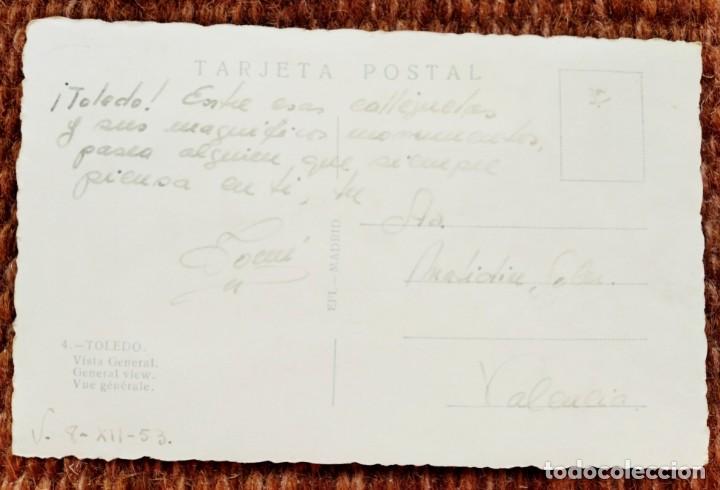 TARJETA POSTAL
¡Toledo! Entre esas callejuelas
y sus magníficos monumentos,
pasea alguien que siempre
piensa en ti, tu
Sta.
EFI.—MADRID
Soler.
Valencia.
4.—TOLEDO.
Vista General.
General view.
Vue générale.
V. 8-XII-53.
todocoleccion.net